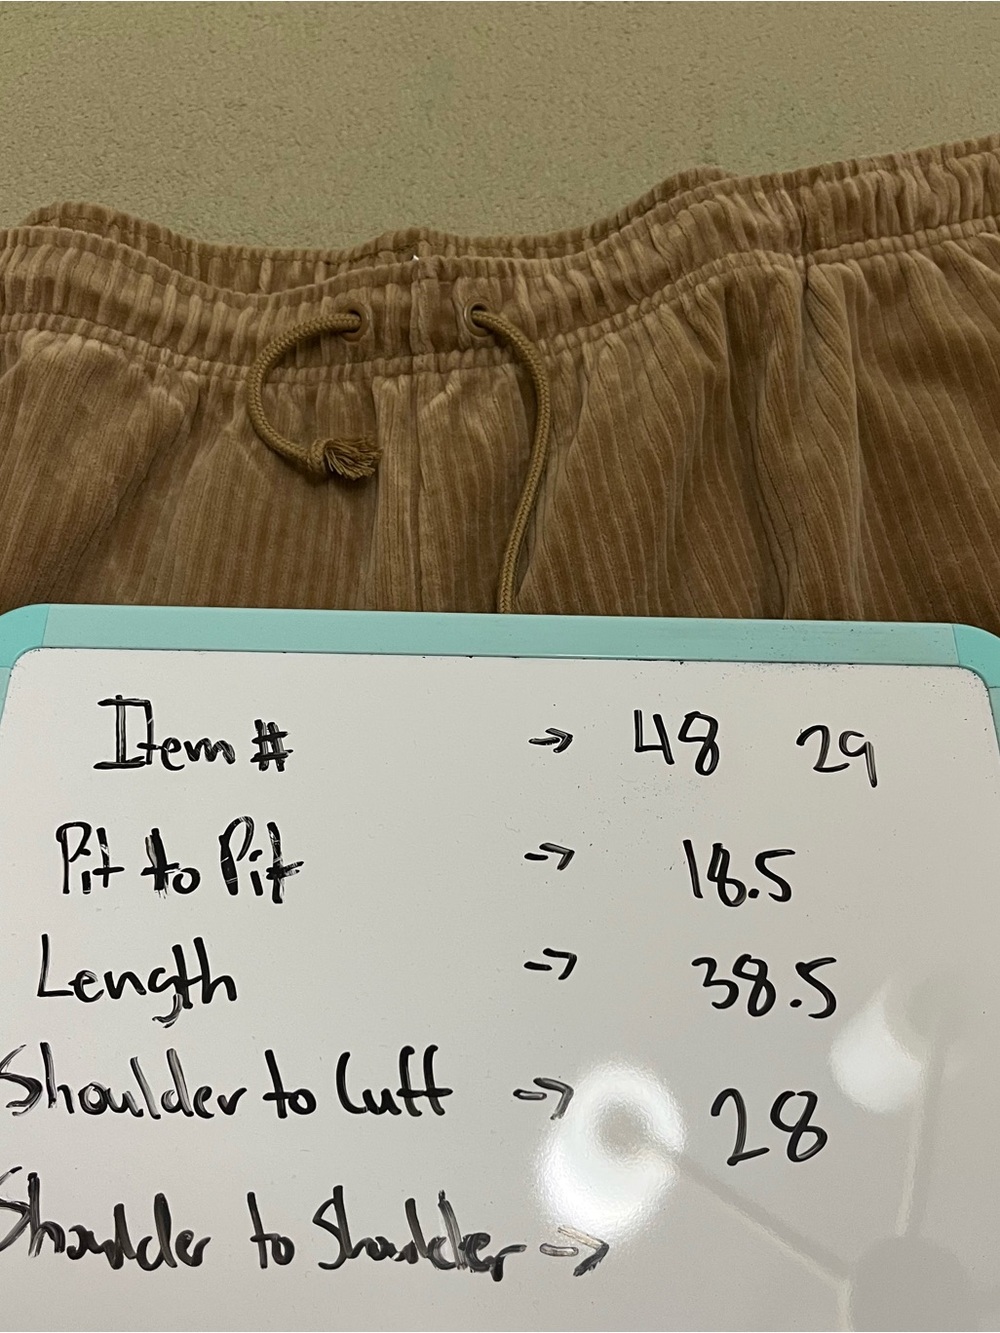 Item # → 48 29
Pit to Pit → 18.5
Length → 38.5
Shoulder to Cuff → 28
Shoulder to Shoulder →